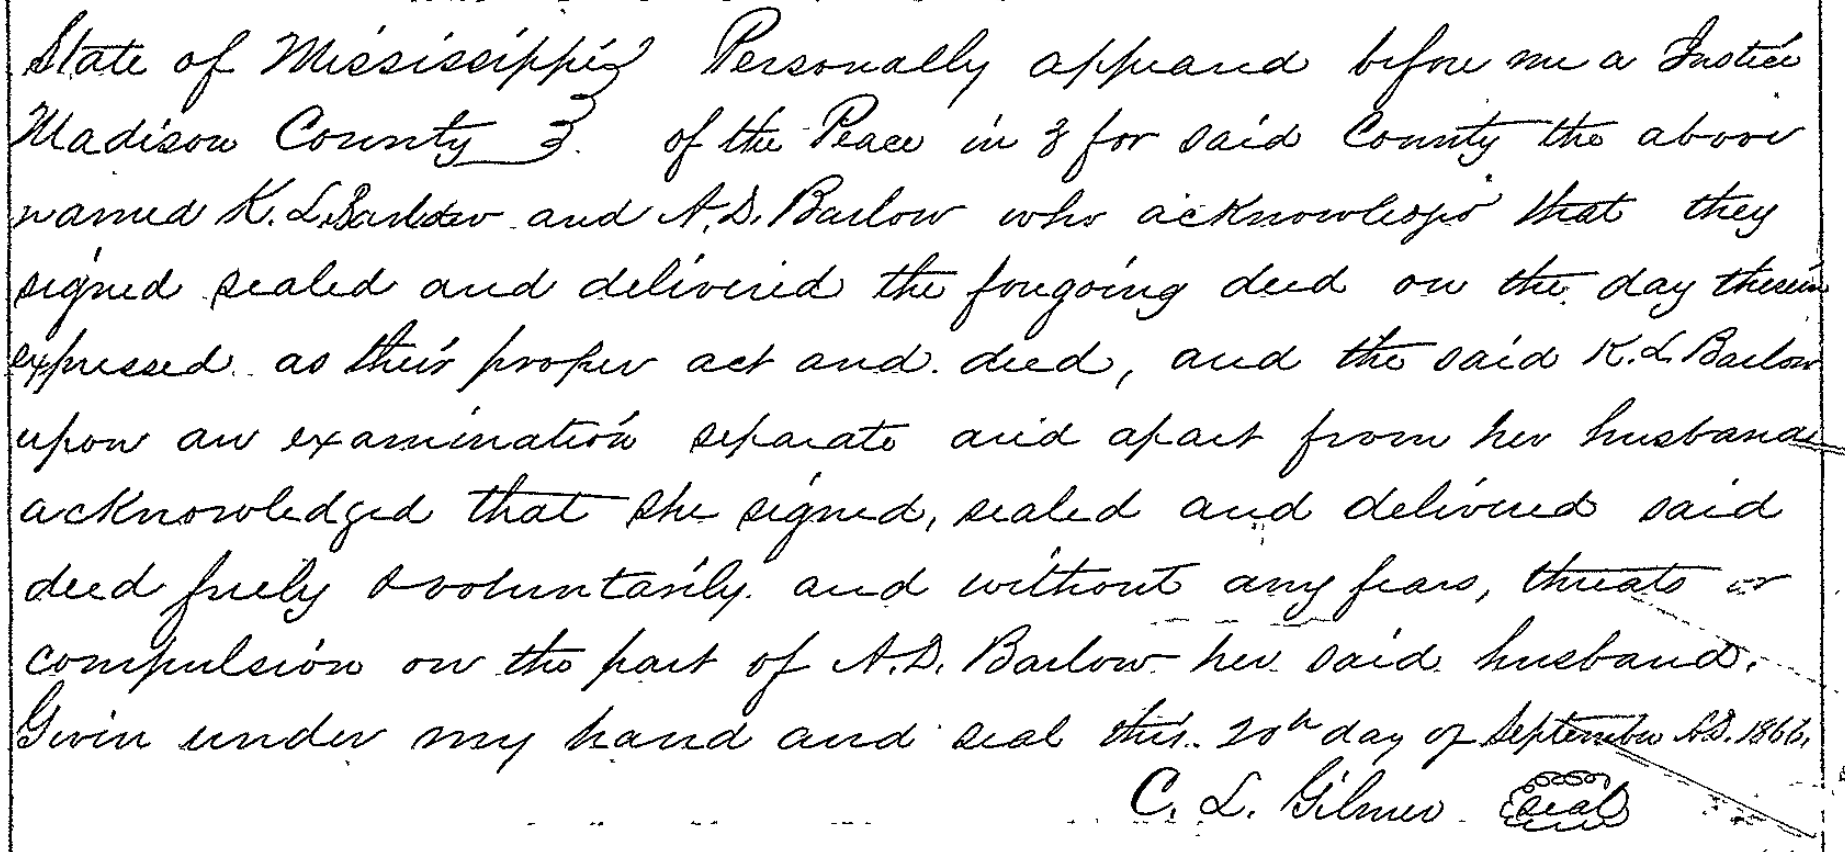 State of Mississippi } Personally appeared before me a Justice
Madison County } of the Peace in & for said County the above
named K. L. Barlow and A. D. Barlow who acknowledged that they
signed sealed and delivered the foregoing deed on the day therein
expressed as their proper act and deed, and the said K. L. Barlow
upon an examination separate and apart from her husband
acknowledged that she signed, sealed and delivered said
deed freely & voluntarily and without any fears, threats or
compulsion on the part of A. D. Barlow her said husband.
Given under my hand and seal this 20th day of September A.D. 1866.
C. L. Gilmer seal